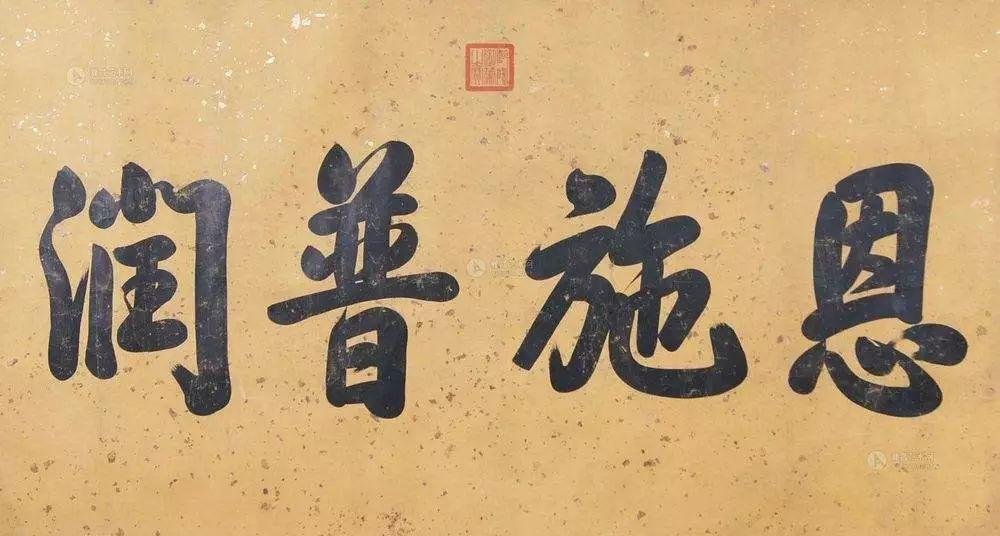 恩施普潤